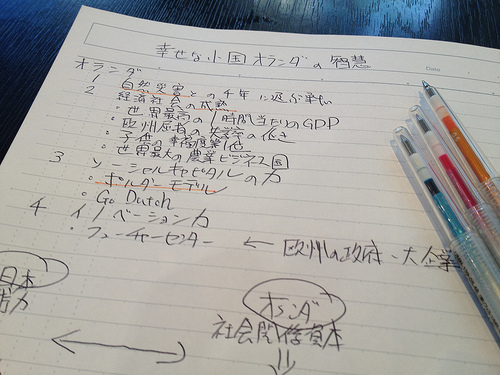 幸せな小国オランダの智慧
Date
オランダ
1 自然災害との千年に及ぶ戦い
2 経済社会の成熟
・世界最高の1時間当たりのGDP
・欧州屈指の失業の低さ
・子供の幸福度1位
・世界最大の農業ビジネス国
3 ソーシャルキャピタルの力
・ポルダーモデル
・Go Dutch
4 イノベーション力
・フューチャーセンター ← 欧州の政府・大企業
日本
オランダ
社会関係資本